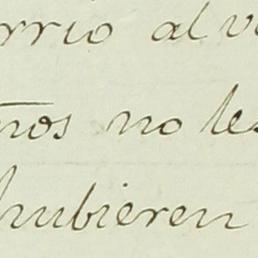 rrio al v
ños no les
hubieren